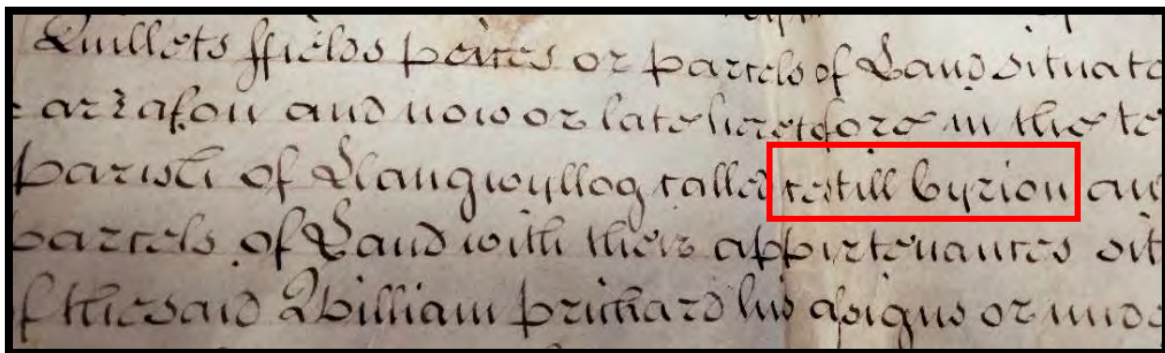 Quillets ffields peices or parcels of Land situate
Carrafon and now or late heretofore in the te
parish of Llangwyllog called restill byrion an
parcels of Land with their appurtenances sit
f the said William Prichard his assigns or unde